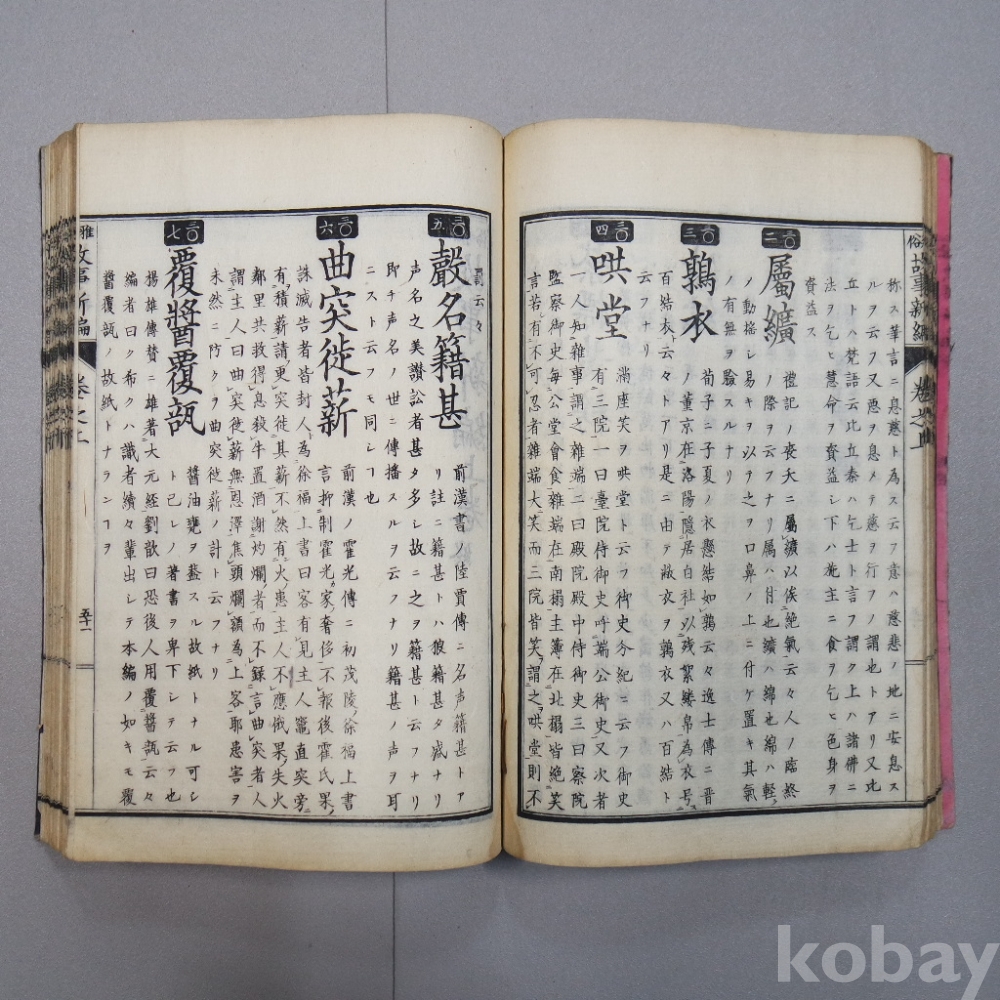 称ス華言ニ息慈ト為ス云フ意ハ慈悲ノ地ニ安息ス
ルヲ云フ又悪ヲ息メテ慈ヲ行フノ謂也トアリ又比
丘トハ梵語云比丘秦ハ乞士ト言フ謂ク上ハ諸佛ニ
法ヲ乞ヒ慧命ヲ資益シ下ハ施主ニ食ヲ乞ヒ色身ヲ
資益ス
三〇二
屬纊
禮記ノ喪大ニ屬纊以俟絶氣云々人ノ臨終
ノ際ヲ云フナリ屬ハ付也纊ハ綿也綿ハ輕
ノ動揺シ易キヲ以テ之ヲ口鼻ノ上ニ付ケ置キ其氣
ノ有無ヲ驗スルナリ
三〇三
鶉衣
荀子ニ子夏ノ衣懸結如鶉云々逸士傳ニ晋
ノ董京在洛陽隱居白社以残絮縷帛為衣号
百結衣云々トアリ是ニ由テ敝衣ヲ鶉衣又ハ百結ト
云フナリ
三〇四
哄堂
滿座笑ヲ哄堂ト云フ御史分紀ニ云フ御史
有三院一曰臺院侍御史呼端公御史又次者
一人知雜事謂之雜端二曰殿院殿中侍御史三曰察院
監察御史每公堂會食雜端在南榻主簿在北榻皆絶笑
言若有不可忍者雜端大笑而三院皆笑謂之哄堂則不
罰云々
三〇五
聲名籍甚
前漢書ノ陸賈傳ニ名声籍甚トア
リ註ニ籍甚トハ狼籍甚タ盛ナリ
声名之美讃訟者甚タ多シ故ニ之ヲ籍甚ト云フナリ
即チ声名ノ世ニ傳播スルヲ云フナリ籍甚ノ声ヲ耳
ニスト云フモ同シヿ也
三〇六
曲突徙薪
前漢ノ霍光傳ニ初茂陵徐福上書
言抑制霍光家奢侈不報後霍氏果
誅滅告者皆封人為徐福上書其言客有見主人竈直突旁
有積薪請更突徙其薪不然有火患主人不應俄果失火
鄰里共救得息殺牛置酒謝灼爛者而不録言曲突者人
謂主人曰曲突徙薪無恩澤焦頭爛額為上客耶患害ヲ
未然ニ防クヲ曲突徙薪ノ計ト云フナリ
三〇七
覆醬覆瓿
醬油甕ヲ葢スル故紙トナル可シ
ト已レノ著書ヲ卑下シテ云フ也
楊雄傳賛ニ雄著大元経劉歆曰恐後人用覆醬瓿云々
編者曰ク希クハ識者續々輩出シテ本編ノ如キモ覆
醬覆瓿ノ故紙トナランヿヲ
雅
故事新編
卷之上
五十一
俗
故事新編
kobay